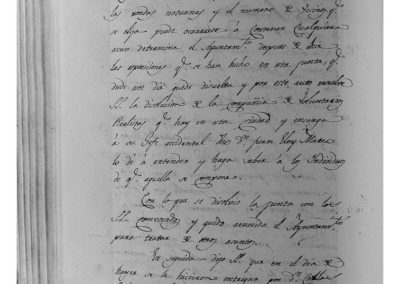 las rondas nocturnas y el numero de vecinos q.e
se elija puede ocurrirse á contener cualquiera
determina el Ayuntam.to despues de oidas
las opiniones q.e se han hecho en esta junta, q.e
desde este dia quede disuelta y por este auto
SS. la disolucion de la Compañia de Voluntarios
Realistas q.e hay en esta Ciudad y encarga
á su Gefe accidental D.n Juan Eloy
lo dé á entender y haga saber á los Individuos
de q.e aquella se compone.
Con lo que se disolvió la junta con los
SS. convocados y quedó reunido el Ayuntam.to
para tratar de otros asuntos.
En seguida dijo SS. que en el dia de
hayer se le hicieron entregas por D.n